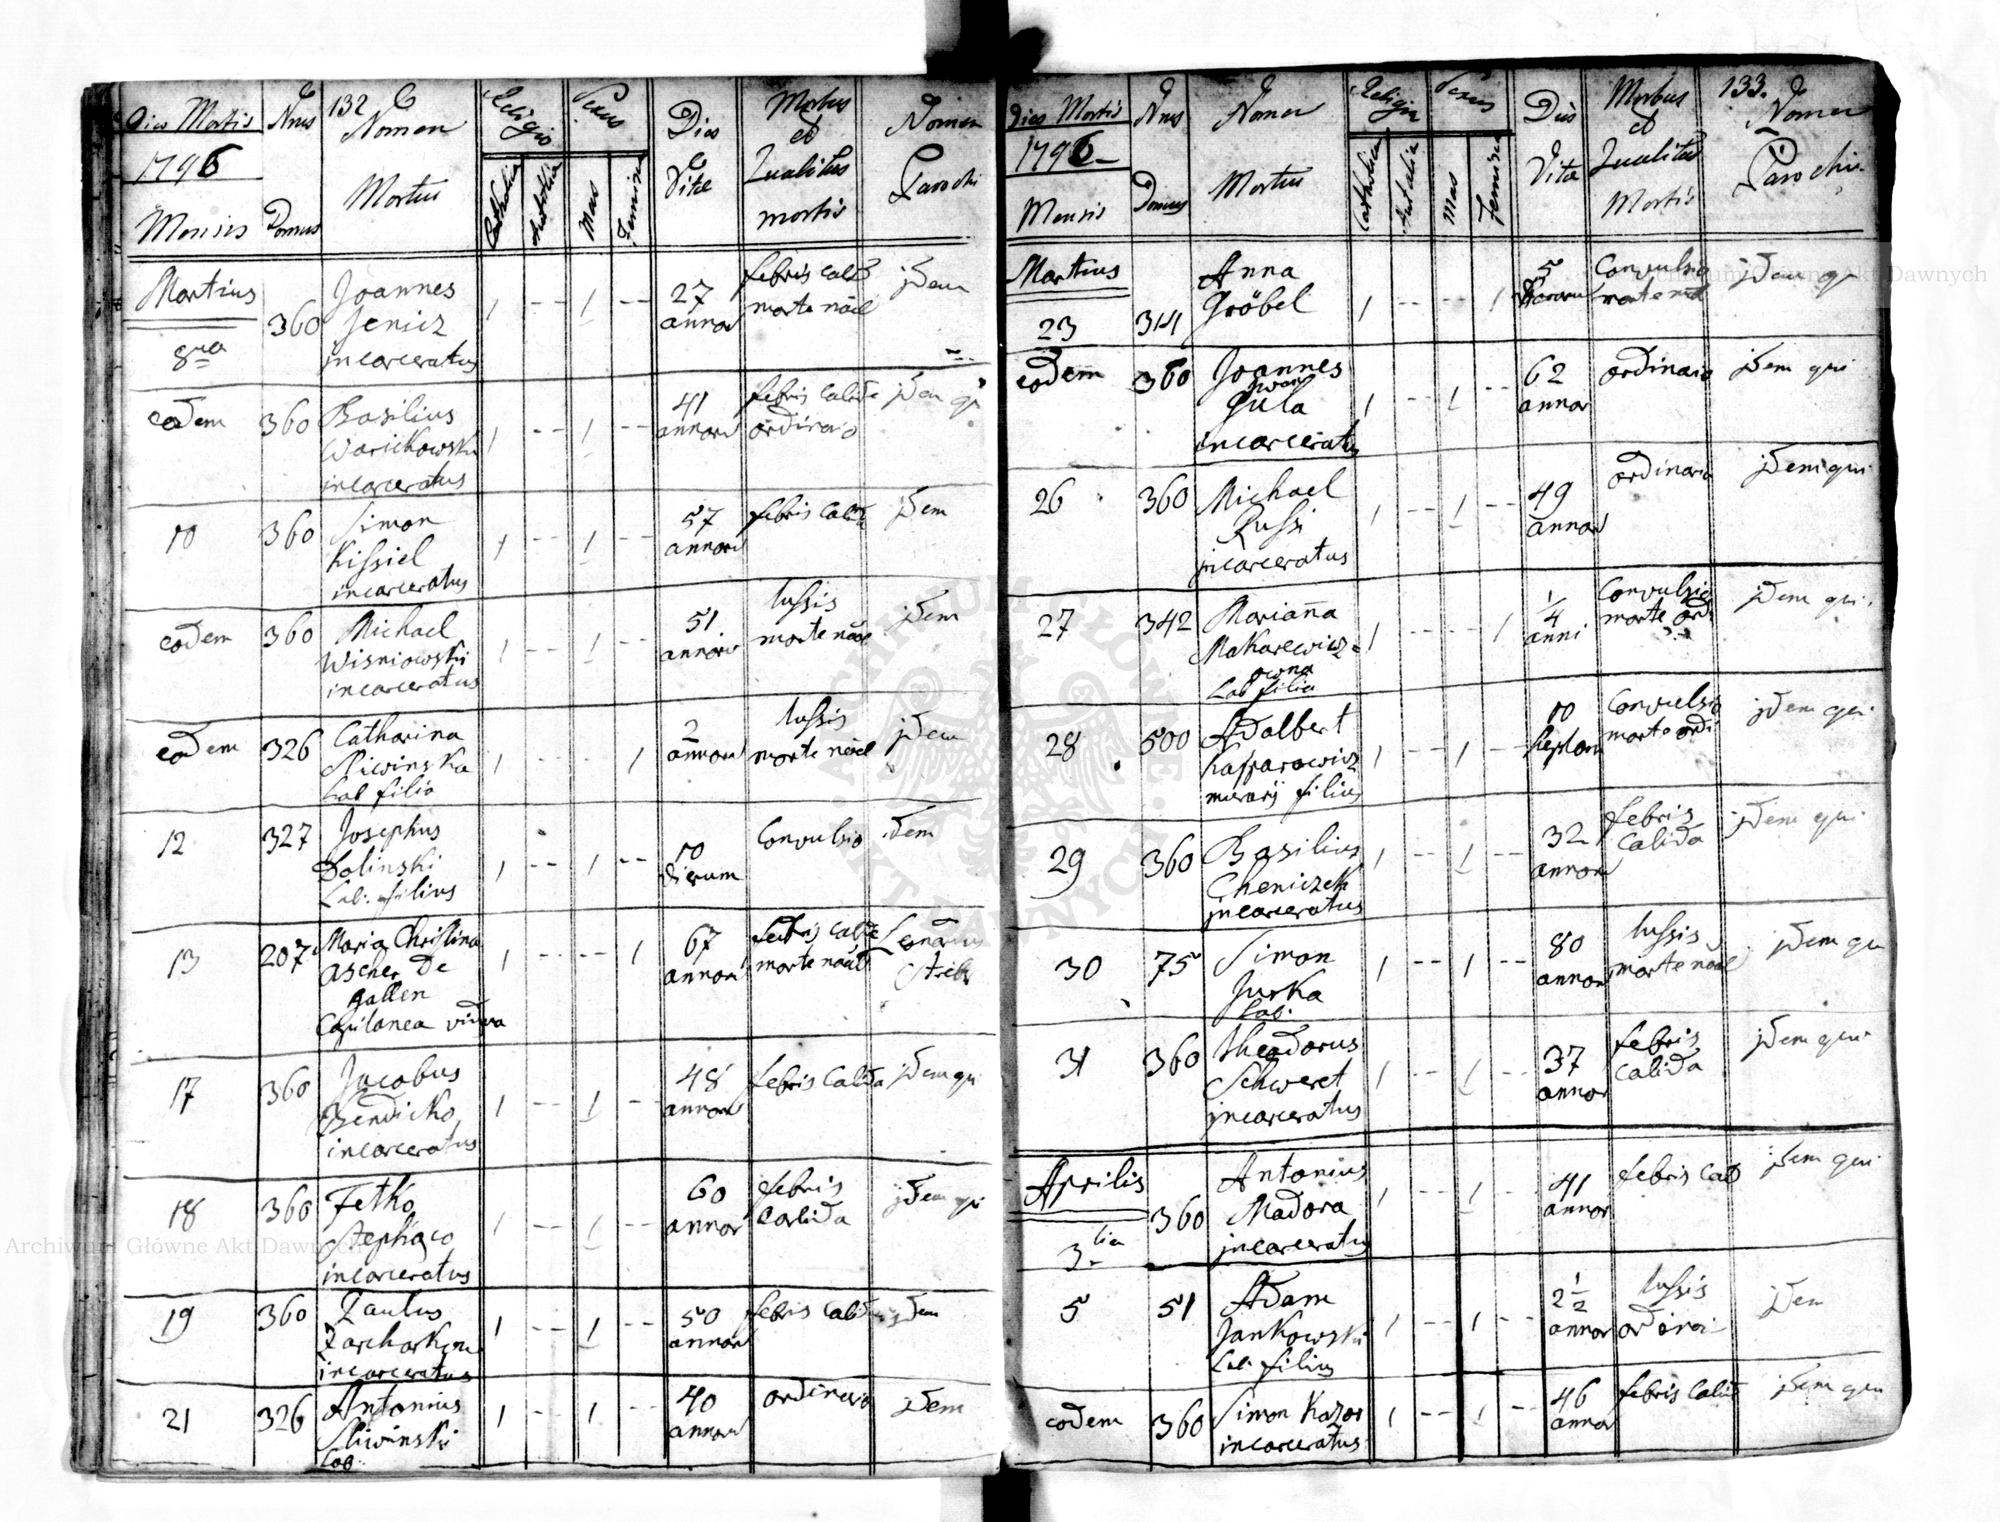 132
Dies Mortis
1796
Mensis
Nrus
Domus
Nomen
Mortui
Religio
Catholica
Sexus
Mas
Femina
Dies
Vitæ
Morbus
et
Qualitas
mortis
Nomen
Parochi
Martius
8va
360
Joannes
Jenicz
incarceratus
27
annor
febris calid
morte nâal
jdem
eodem
360
Basilius
incarceratus
41
annor
febris calida
ordinar
jdem qi
10
360
Simon
Kissiel
incarceratus
57
annor
febris calid
jdem
eodem
360
Michael
Wisniowski
incarceratus
51
annor
tussis
morte nâal
jdem
eodem
326
Catharina
Sliwinska
Lab filia
2
annor
tussis
morte nâal
jdem
12
327
Josephus
Dolinski
Lab: filius
10
dierum
Convulsio
jdem
13
207
Maria Christina
Ascher De
Gallen
Capitanea vidua
67
annor
febris calid
morte nâal
17
360
Jacobus
Bendicko
incarceratus
48
annor
febris Calida
jdem qi
18
360
Fetko
incarceratus
60
annor
febris
Calida
jdem qi
19
360
Paulus
incarceratus
50
annor
febris calida
jdem
21
326
Antonius
Sliwinski
Lab
40
annor
ordinario
jdem
133.
Dies Mortis
1796
Mensis
Nrus
Domus
Nomen
Mortui
Religio
Catholica
Sexus
Mas
Femina
Dies
Vitæ
Morbus
et
Qualitas
Mortis
Nomen
Parochi
Martius
23
341
Anna
Gröbel
5
Convulsio
morte nâal
jdem qi
eodem
360
Joannes
Gula
incarceratus
62
annor
ordinario
jdem qui
26
360
Michael
Russi
incarceratus
49
annor
ordinario
jdem qui
27
342
Marianna
Makarewicz=
owna
Lab filia
1/4
anni
Convulsio
morte ordi
jdem qui
28
500
Adalbert
Kasparowicz
murarij filius
10
septem
Convulsio
morte ordi
jdem qui
29
360
Basilius
Cheniczek
incarceratus
32
annor
febris
Calida
jdem qui
30
75
Simon
Jurka
Lab.
80
annor
tussis
morte nâal
jdem qu
31
360
Theodorus
Schweret
incarceratus
37
annor
febris
calida
jdem qui
Aprilis
3tia
360
Antonius
Madora
incarceratus
41
annor
febris cald
jdem qui
5
51
Adam
Jankowski
Lab: filius
2 1/2
annor
tussis
jdem
eodem
360
Simon Kazor
incarceratus
46
annor
febris Calid
jdem qui
ARCHIWUM GŁÓWNE AKT DAWNYCH
Archiwum Główne Akt Dawnych
Archiwum Główne Akt Dawnych